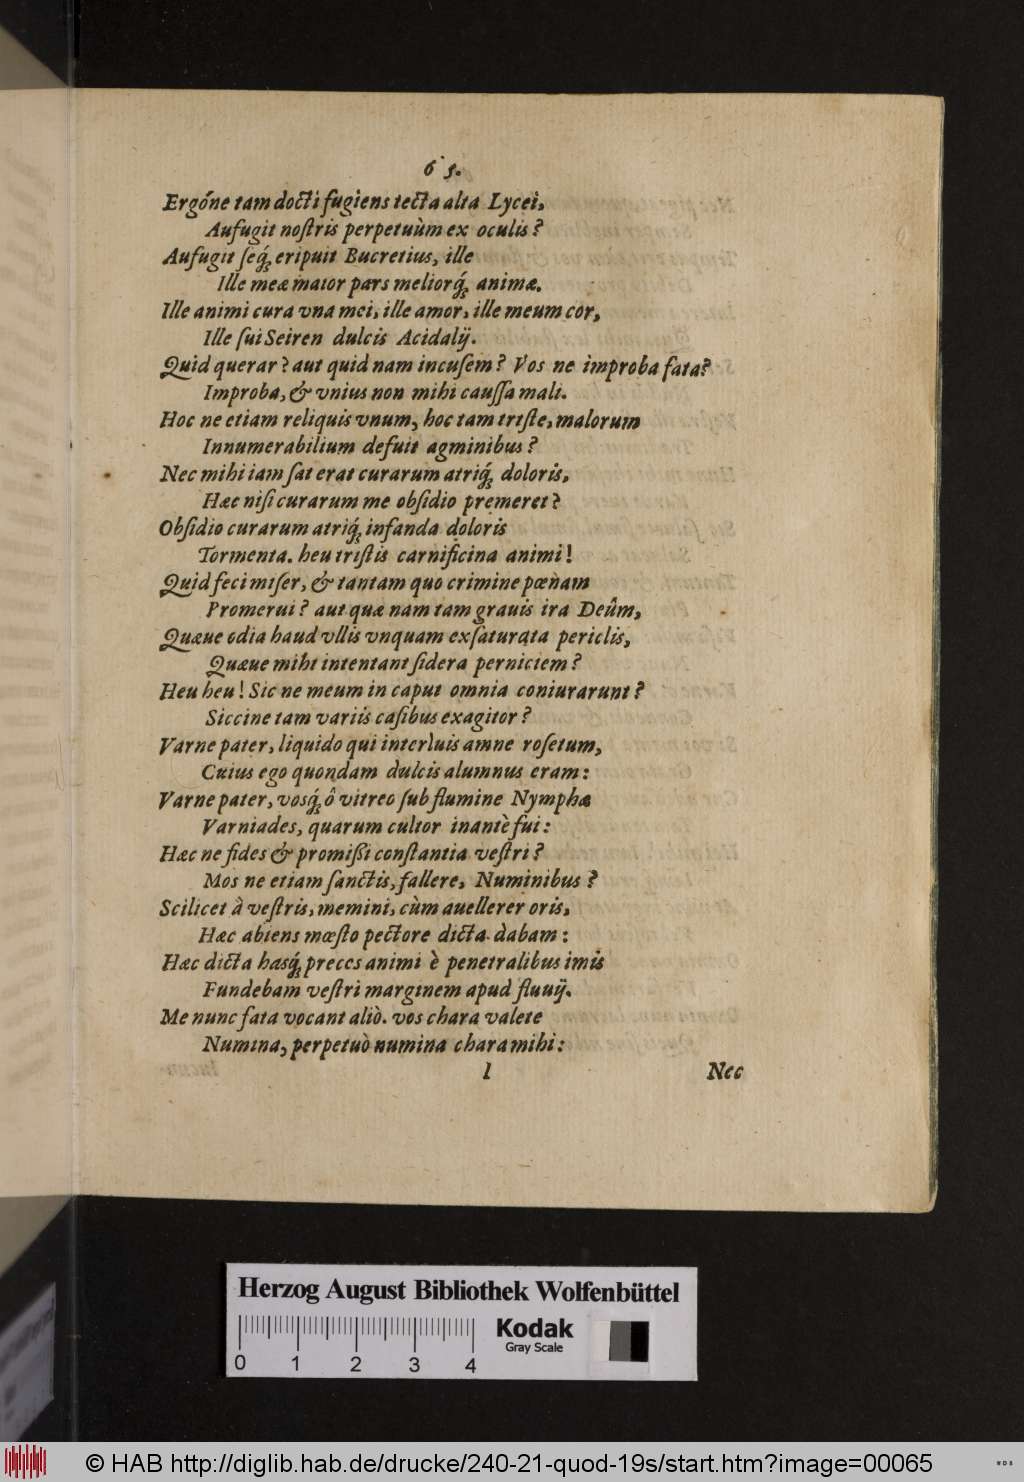 65.
Ergóne tam docti fugiens tecta alta Lycei,
Aufugit noſtris perpetuùm ex oculis?
Aufugit ſeq́ꝫ eripuit Bucretius, ille
Ille meæ maior pars meliorq́ꝫ animæ.
Ille animi cura vna mei, ille amor, ille meum cor,
Ille ſui Seiren dulcis Acidalij.
Quid querar? aut quid nam incuſem? Vos ne improba fata?
Improba, & vnius non mihi cauſſa mali.
Hoc ne etiam reliquis vnum, hoc tam triſte, malorum
Innumerabilium defuit agminibus?
Nec mihi iam ſat erat curarum atriq́ꝫ doloris,
Hæc niſi curarum me obſidio premeret?
Obſidio curarum atriq́ꝫ infanda doloris
Tormenta. heu triſtis carnificina animi!
Quid feci miſer, & tantam quo crimine pœnam
Promerui? aut quæ nam tam grauis ira Deûm,
Quæue odia haud vllis vnquam exſaturata periclis,
Quæue mihi intentant ſidera perniciem?
Heu heu! Sic ne meum in caput omnia coniurarunt?
Siccine tam variis caſibus exagitor?
Varne pater, liquido qui interluis amne roſetum,
Cuius ego quondam dulcis alumnus eram:
Varne pater, vosq́ꝫ ô vitreo ſub flumine Nymphæ
Varniades, quarum cultor inantè fui:
Hæc ne fides & promißi conſtantia veſtri?
Mos ne etiam ſanctis, fallere, Numinibus?
Scilicet à veſtris, memini, cùm auellerer oris,
Hæc abiens mœſto pectore dicta dabam:
Hæc dicta hasq́ꝫ preces animi è penetralibus imis
Fundebam veſtri marginem apud fluuij.
Me nunc fata vocant aliò. vos chara valete
Numina, perpetuò numina chara mihi:
l Nec
Herzog August Bibliothek Wolfenbüttel
Kodak
Gray Scale
0 1 2 3 4
© HAB http://diglib.hab.de/drucke/240-21-quod-19s/start.htm?image=00065